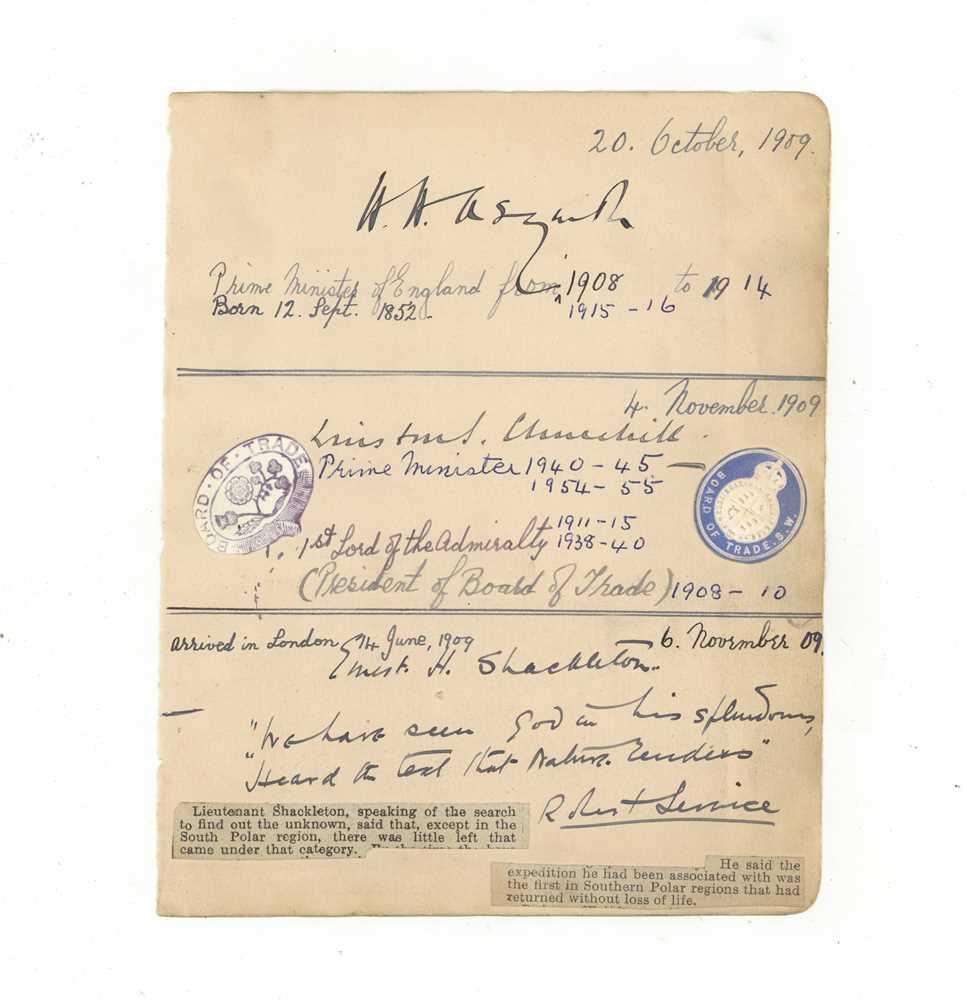 20. October, 1909.
H. H. Asquith
Prime Minister of England from 1908 to 1914
Born 12. Sept. 1852. 1915 - 16
4. November. 1909
Winston S. Churchill.
BOARD · OF · TRADE
Prime Minister 1940 - 45 -
1954 - 55
BOARD OF TRADE. S.W.
1911 - 15
1st Lord of the Admiralty 1938 - 40
(President of Board of Trade) 1908 - 10
arrived in London 14 June, 1909
6. November 09.
Ernest. H. Shackleton.
"We have seen God in his splendours,
"Heard the text that Nature renders"
Robert Service
Lieutenant Shackleton, speaking of the search
to find out the unknown, said that, except in the
South Polar region, there was little left that
came under that category.
He said the
expedition he had been associated with was
the first in Southern Polar regions that had
returned without loss of life.